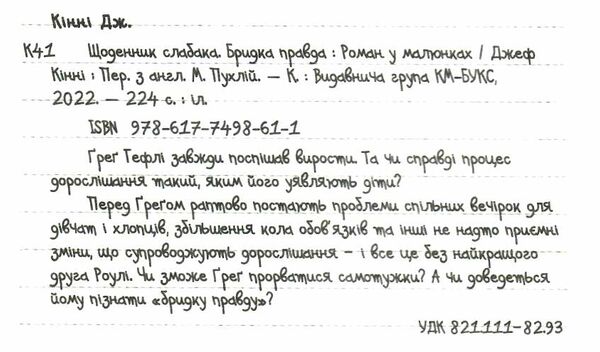 Кінні Дж.
К41 Щоденник слабака. Бридка правда : Роман у малюнках / Джеф
Кінні ; Пер. з англ. М. Пухлій. — К. : Видавнича група КМ-БУКС,
2022. — 224 с. : іл.
ISBN 978-617-7498-61-1
Ґреґ Гефлі завжди поспішав вирости. Та чи справді процес
дорослішання такий, яким його уявляють діти?
Перед Ґреґом раптово постають проблеми спільних вечірок для
дівчат і хлопців, збільшення кола обов'язків та інші не надто приємні
зміни, що супроводжують дорослішання – і все це без найкращого
друга Роулі. Чи зможе Ґреґ прорватися самотужки? А чи доведеться
йому пізнати «бридку правду»?
УДК 821.111-82.93